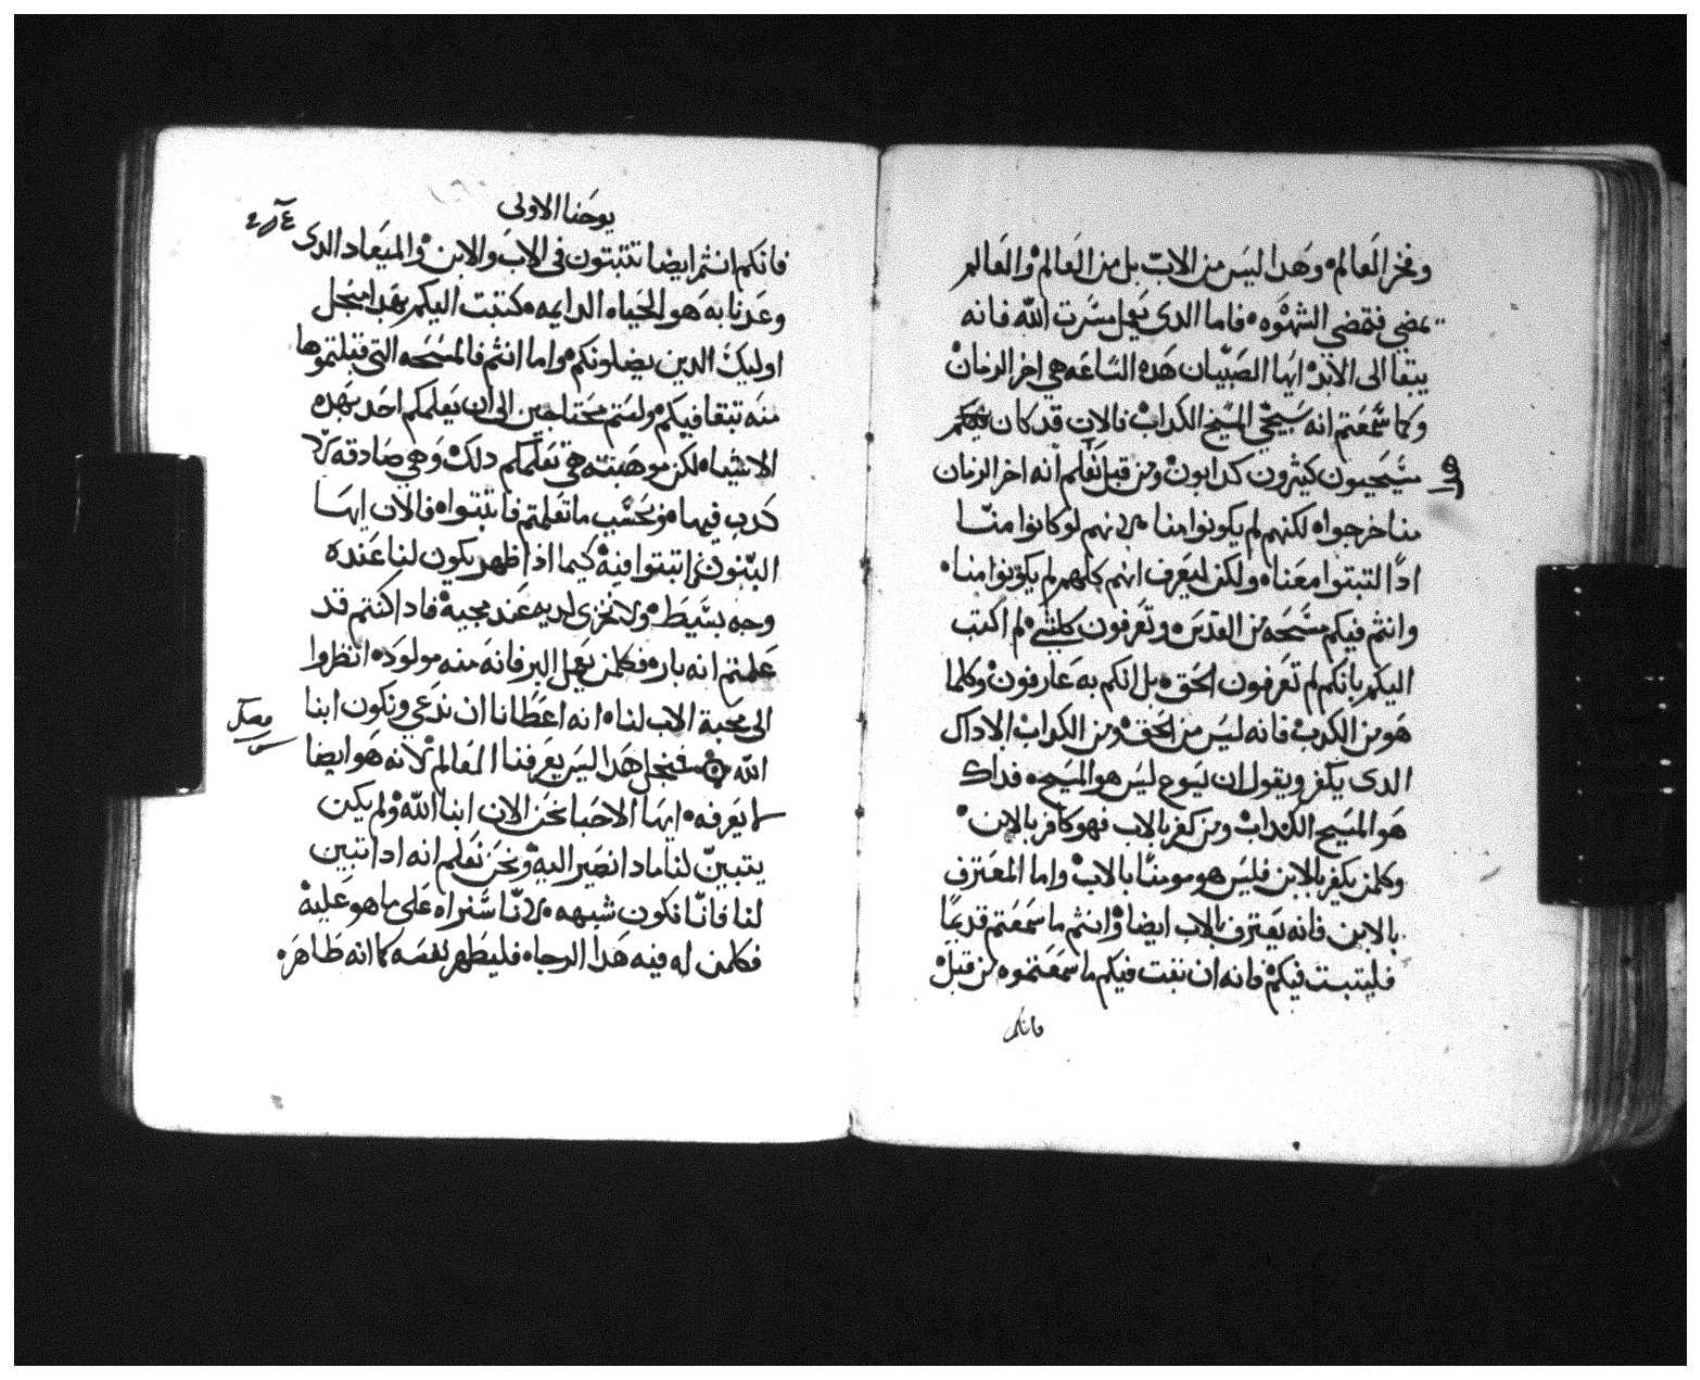 وفخر العالم. وهدا ليس من الاب بل من العالم والعالم
يمضي فتمضي الشهوه. فاما الدى يعمل مسرت الله فانه
يبقا الى الابد. ايها الصبيان هده الساعه هي اخر الزمان
وكما سمعتم انه سيجي المسيح الكداب فالان قد كان فيكم
مسيحيون كثيرون كدابون ومن قبل نعلم انه اخر الزمان
منا خرجوا. لكنهم لم يكونوا منا. لانهم لو كانوا منا
ادا لتبتوا معنا. ولكن ليعرف انهم كلهم لم يكونوا منا.
وانتم فيكم مسحه من القدس. وتعرفون كلشي. لم اكتب
اليكم بانكم لم تعرفون الحق. بل انكم به عارفون وكلما
هو من الكدب فانه ليس من الحق. ومن الكداب الا داك
الدى يكفر ويقول ان يسوع ليس هو المسيح. فداك
هو المسيح الكداب ومن كفر بالاب فهو كافر بالابن.
وكلمن يكفر بالابن فليس هو مومنا بالاب واما المعترف
بالابن فانه يعترف بالاب ايضا وانتم ما سمعتم قديما
فليتبت فيكم. فانه ان تبت فيكم ما سمعتموه من قبل
فانكم
يوحنا الاولى
فانكم انتم ايضا تتبتون في الاب والابن والميعاد الدى
وعدنا به هو الحياه الدايمه. كتبت اليكم بهدا منجل
اوليك الدين يضلونكم واما انتم فالمسحه التي قبلتموها
منه تبقا فيكم ولستم محتاجين الى ان يعلمكم احد بهده
الاشياء لكن موهبته هي تعلمكم دلك وهي صادقه لا
كدب فيها. وبحسب ما تعلمتم فاتبتوا. فالان ايها
البنون اتبتوا فيه كيما ادا ظهر يكون لنا عنده
وجه بسيط. ولا نخزى لديه عند مجيه فادا كنتم قد
علمتم انه بار. فكلمن يعمل البر فانه منه مولود. انظروا
الى محبة الاب لنا. انه اعطانا ان ندعي ونكون ابنا
الله فمنجل هدا ليس يعرفنا العالم لانه هو ايضا
لا يعرفه. ايها الاحبا نحن الان ابنا الله ولم يكن
يتبين لنا مادا نصير اليه ونحن نعلم انه ادا تبين
لنا فانا نكون شبهه. لانا سنراه على ما هو عليه
فكلمن له فيه هدا الرجاه فليطهر نفسه كما انه طاهر.